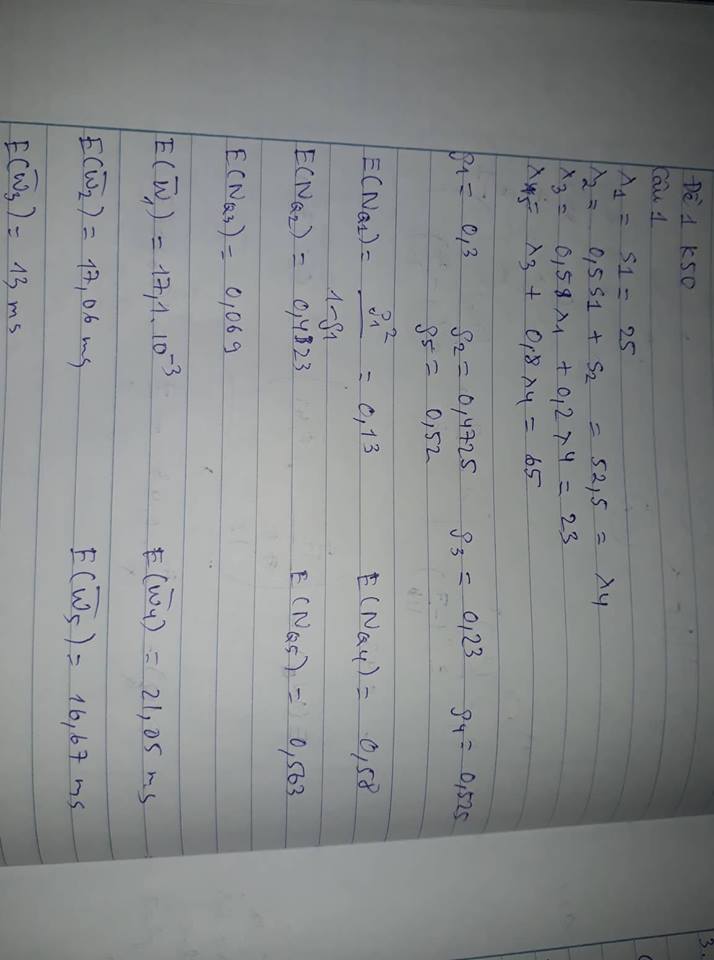 Đề 1 K50
Câu 1
λ1 = S1 = 25
λ2 = 0,5S1 + S2 = 52,5 = λ4
λ3 = 0,5λ1 + 0,2λ4 = 23
λ5 = λ3 + 0,8λ4 = 65
ρ1 = 0,3 ρ2 = 0,4725 ρ3 = 0,23 ρ4 = 0,525
ρ5 = 0,52
E(NQ1) = ρ1² / 1-ρ1 = 0,13 E(NQ4) = 0,58
E(NQ2) = 0,4323 E(NQ5) = 0,563
E(NQ3) = 0,069
E(W̅1) = 17,1.10⁻³ E(W̅4) = 21,05 ms
E(W̅2) = 17,06 ms E(W̅5) = 16,67 ms
E(W̅3) = 13 ms
3.